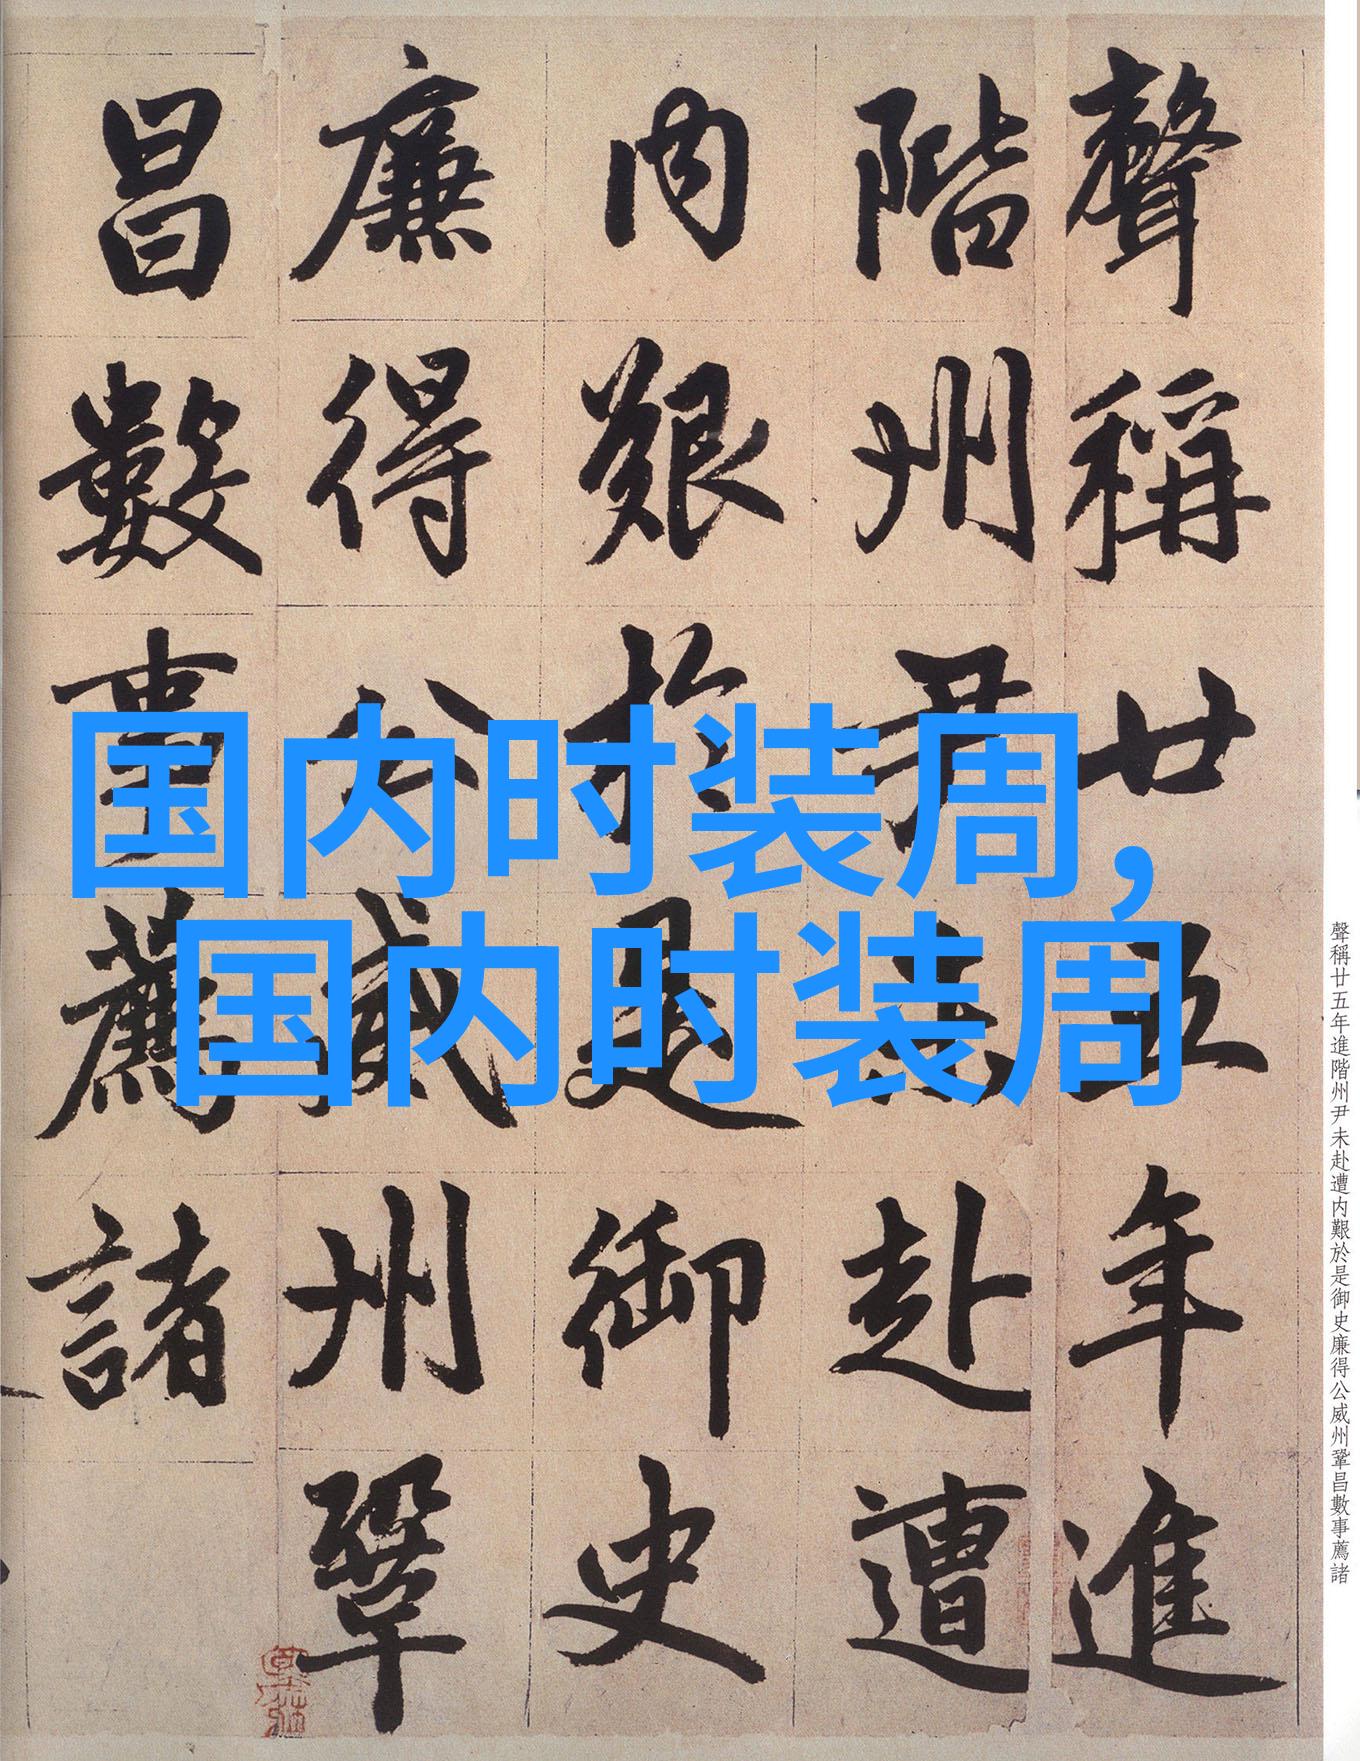 聲稱廿五年進
階州尹未赴遭
内艱於是御史
廉得公威州鞏
昌數事薦諸
国内时装周,
国内时装周
聲稱廿五年進階州尹未赴遭内艱於是御史廉得公威州鞏昌數事薦諸